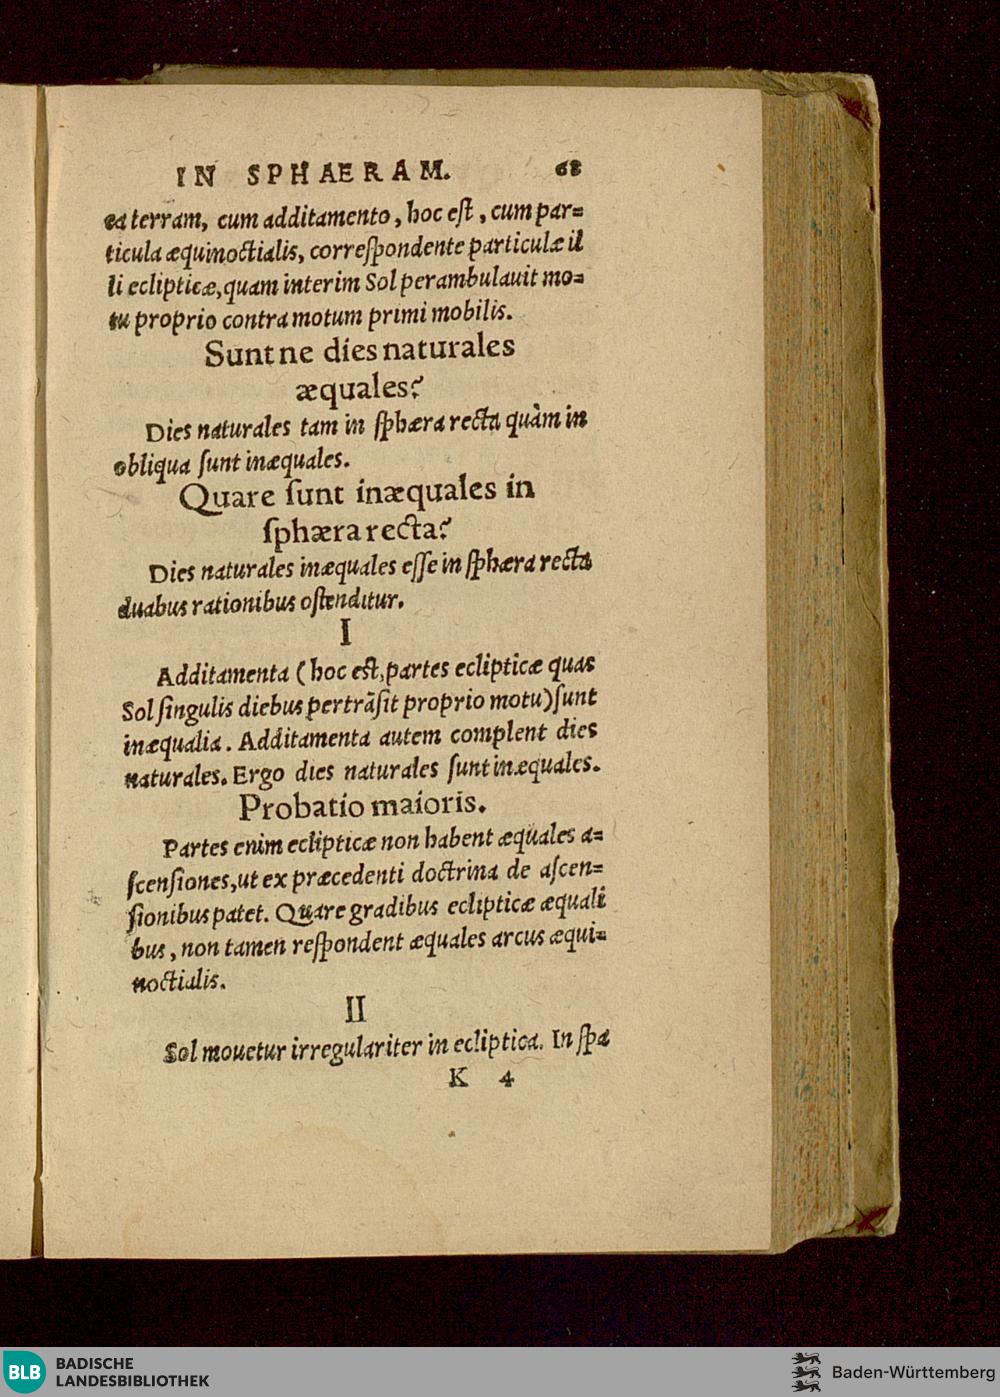 IN SPHAERAM. 68
ea terram, cum additamento, hoc est, cum par=
ticula æquinoctialis, correspondente particulæ il
li eclipticæ, quam interim Sol perambulauit mo=
tu proprio contra motum primi mobilis.
Sunt ne dies naturales
æquales?
Dies naturales tam in sphæra recta quàm in
obliqua sunt inæquales.
Quare ſunt inæquales in
ſphæra recta?
Dies naturales inæquales eſſe in ſphæra recta
duabus rationibus oſtenditur.
I
Additamenta (hoc eſt, partes eclipticæ quas
Sol ſingulis diebus pertrãſit proprio motu) ſunt
inæqualia. Additamenta autem complent dies
naturales. Ergo dies naturales ſunt inæquales.
Probatio maioris.
Partes enim eclipticæ non habent æquales a=
ſcenſiones, ut ex præcedenti doctrina de aſcen=
ſionibus patet. Quare gradibus eclipticæ æquali
bus, non tamen reſpondent æquales arcus æqui=
noctialis.
II
Sol mouetur irregulariter in ecliptica. In ſpa
K 4
BLB BADISCHE
LANDESBIBLIOTHEK
Baden-Württemberg